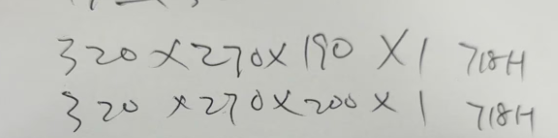 320×270×190×1 718H
320×270×200×1 718H